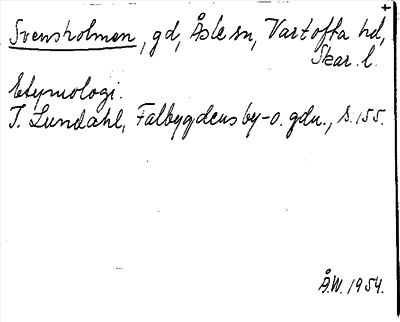 Svensholmen, gd, Åsle sn, Vartofta hd,
Skar. l.
Etymologi.
I. Lundahl, Falbygdens by- o. gdn., s. 155.
Å.W. 1954.